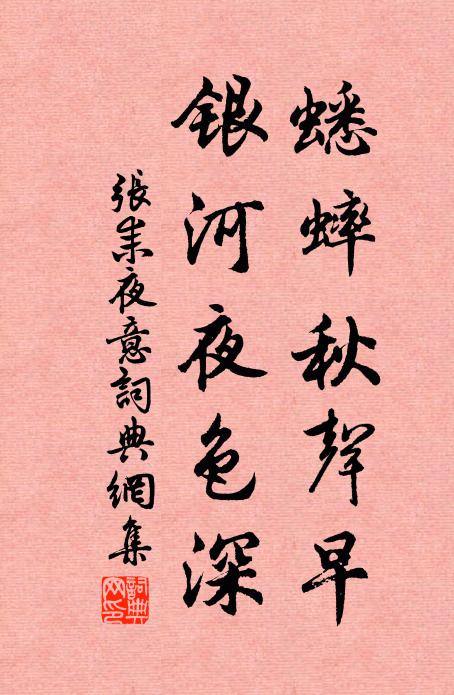 蟋蟀秋聲早
銀河夜色深
張耒夜意詞典網集
詞典網印